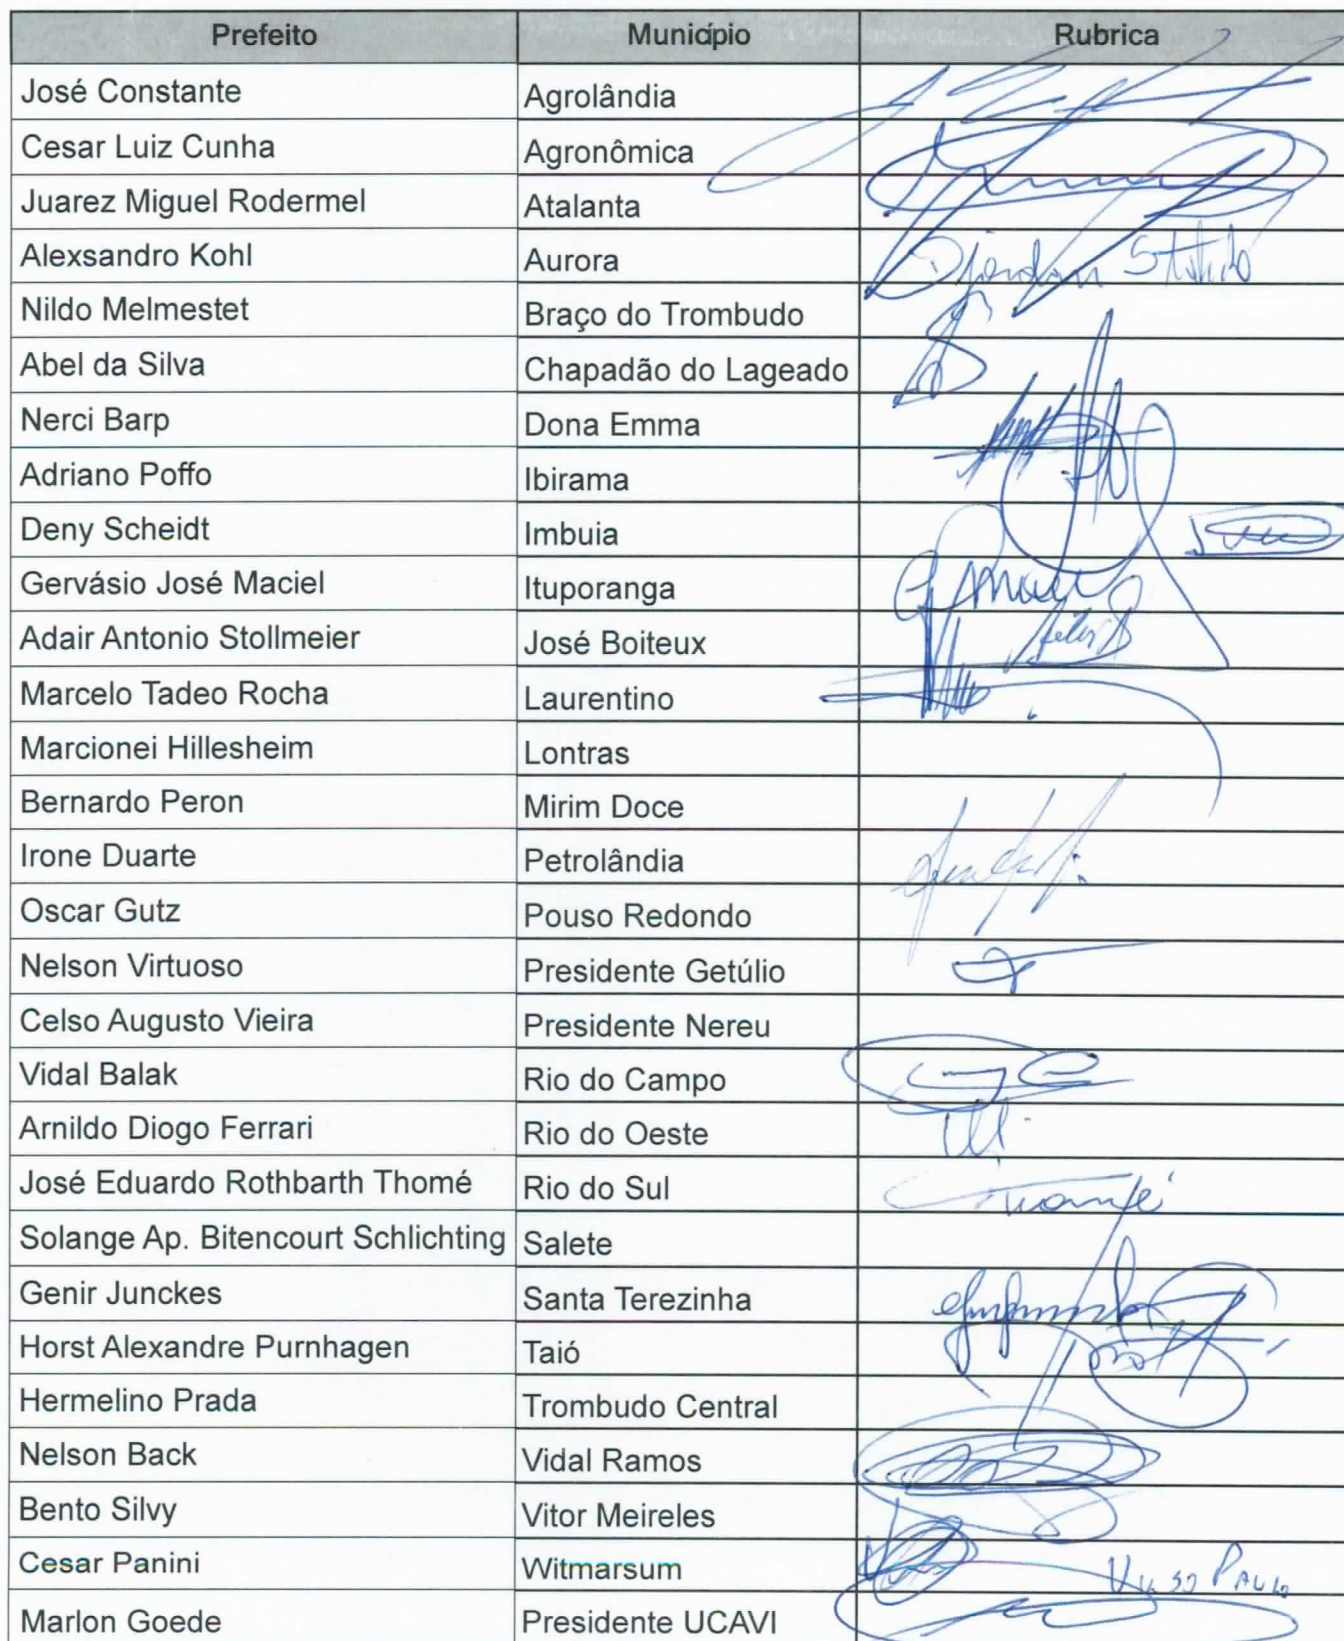 Prefeito Município Rubrica
José Constante Agrolândia
Cesar Luiz Cunha Agronômica
Juarez Miguel Rodermel Atalanta
Alexsandro Kohl Aurora
Nildo Melmestet Braço do Trombudo
Abel da Silva Chapadão do Lageado
Nerci Barp Dona Emma
Adriano Poffo Ibirama
Deny Scheidt Imbuia
Gervásio José Maciel Ituporanga
Adair Antonio Stollmeier José Boiteux
Marcelo Tadeo Rocha Laurentino
Marcionei Hillesheim Lontras
Bernardo Peron Mirim Doce
Irone Duarte Petrolândia
Oscar Gutz Pouso Redondo
Nelson Virtuoso Presidente Getúlio
Celso Augusto Vieira Presidente Nereu
Vidal Balak Rio do Campo
Arnildo Diogo Ferrari Rio do Oeste
José Eduardo Rothbarth Thomé Rio do Sul
Solange Ap. Bitencourt Schlichting Salete
Genir Junckes Santa Terezinha
Horst Alexandre Purnhagen Taió
Hermelino Prada Trombudo Central
Nelson Back Vidal Ramos
Bento Silvy Vitor Meireles
Cesar Panini Witmarsum
Marlon Goede Presidente UCAVI